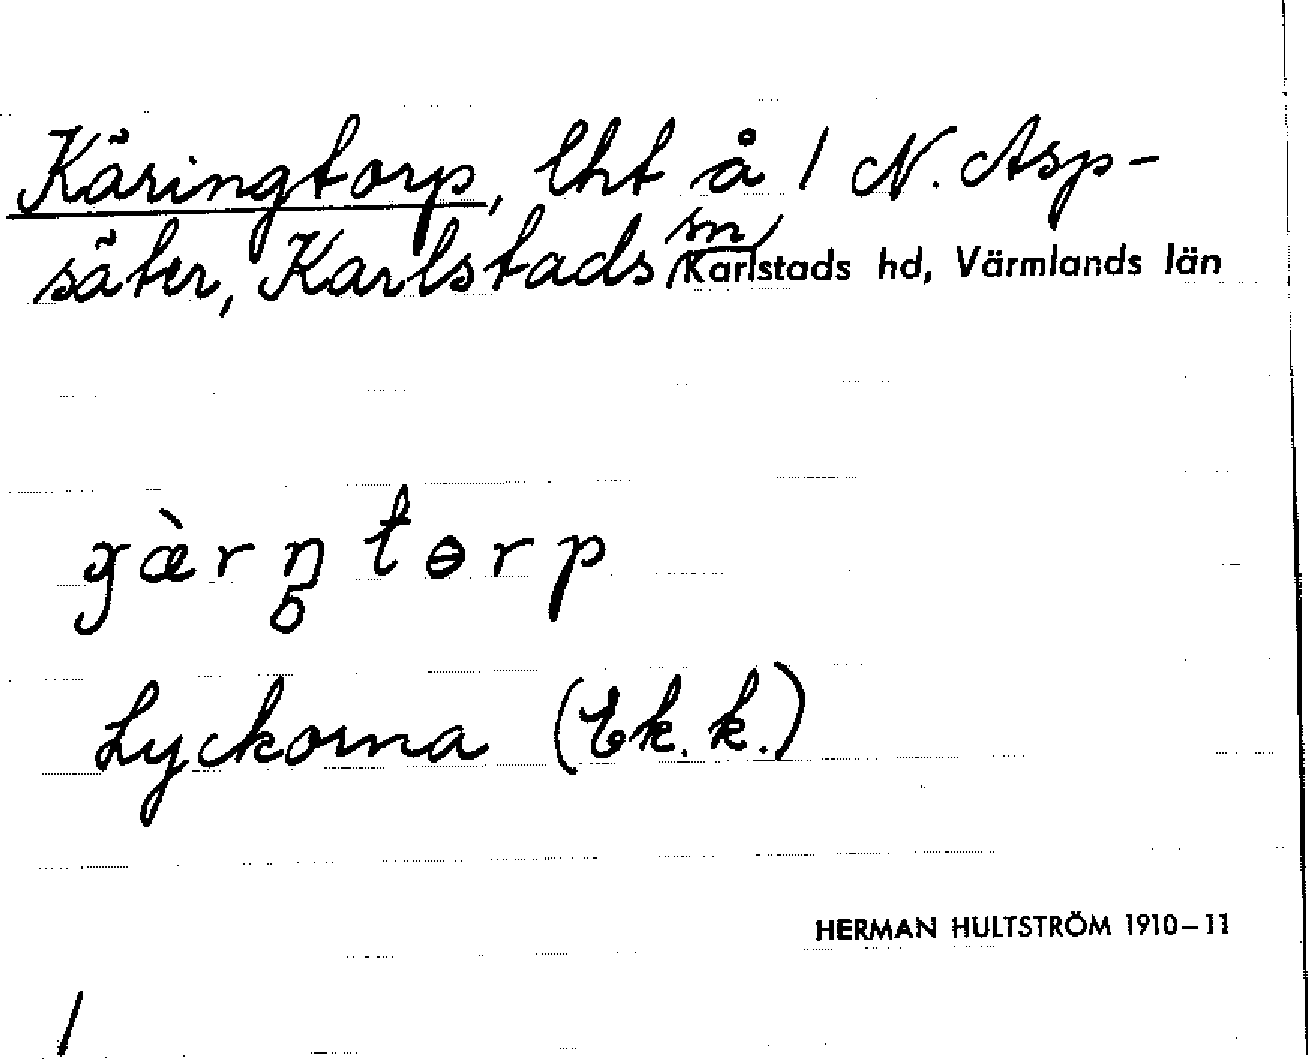 Käringtorp, lht å 1 N. Asp-
säter, Karlstads sn, Karlstads hd, Värmlands län
Lyckorna (Ek. k.)
HERMAN HULTSTRÖM 1910–11
/